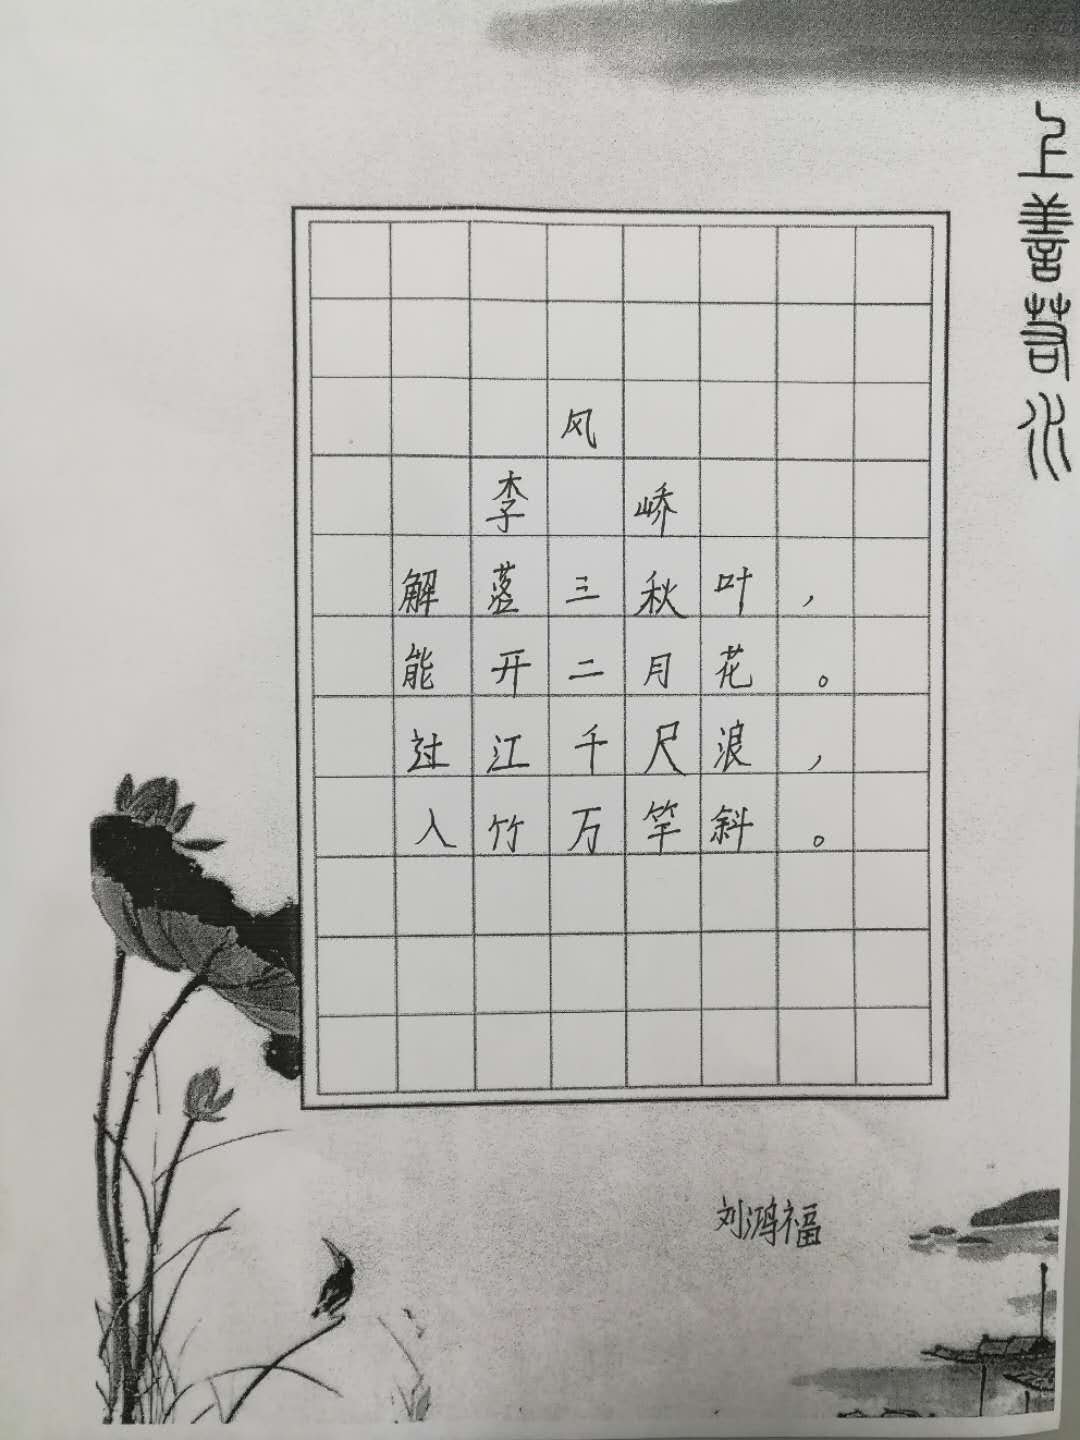 上善若水
风
李 峤
解落三秋叶，
能开二月花。
过江千尺浪，
入竹万竿斜。
刘鸿福